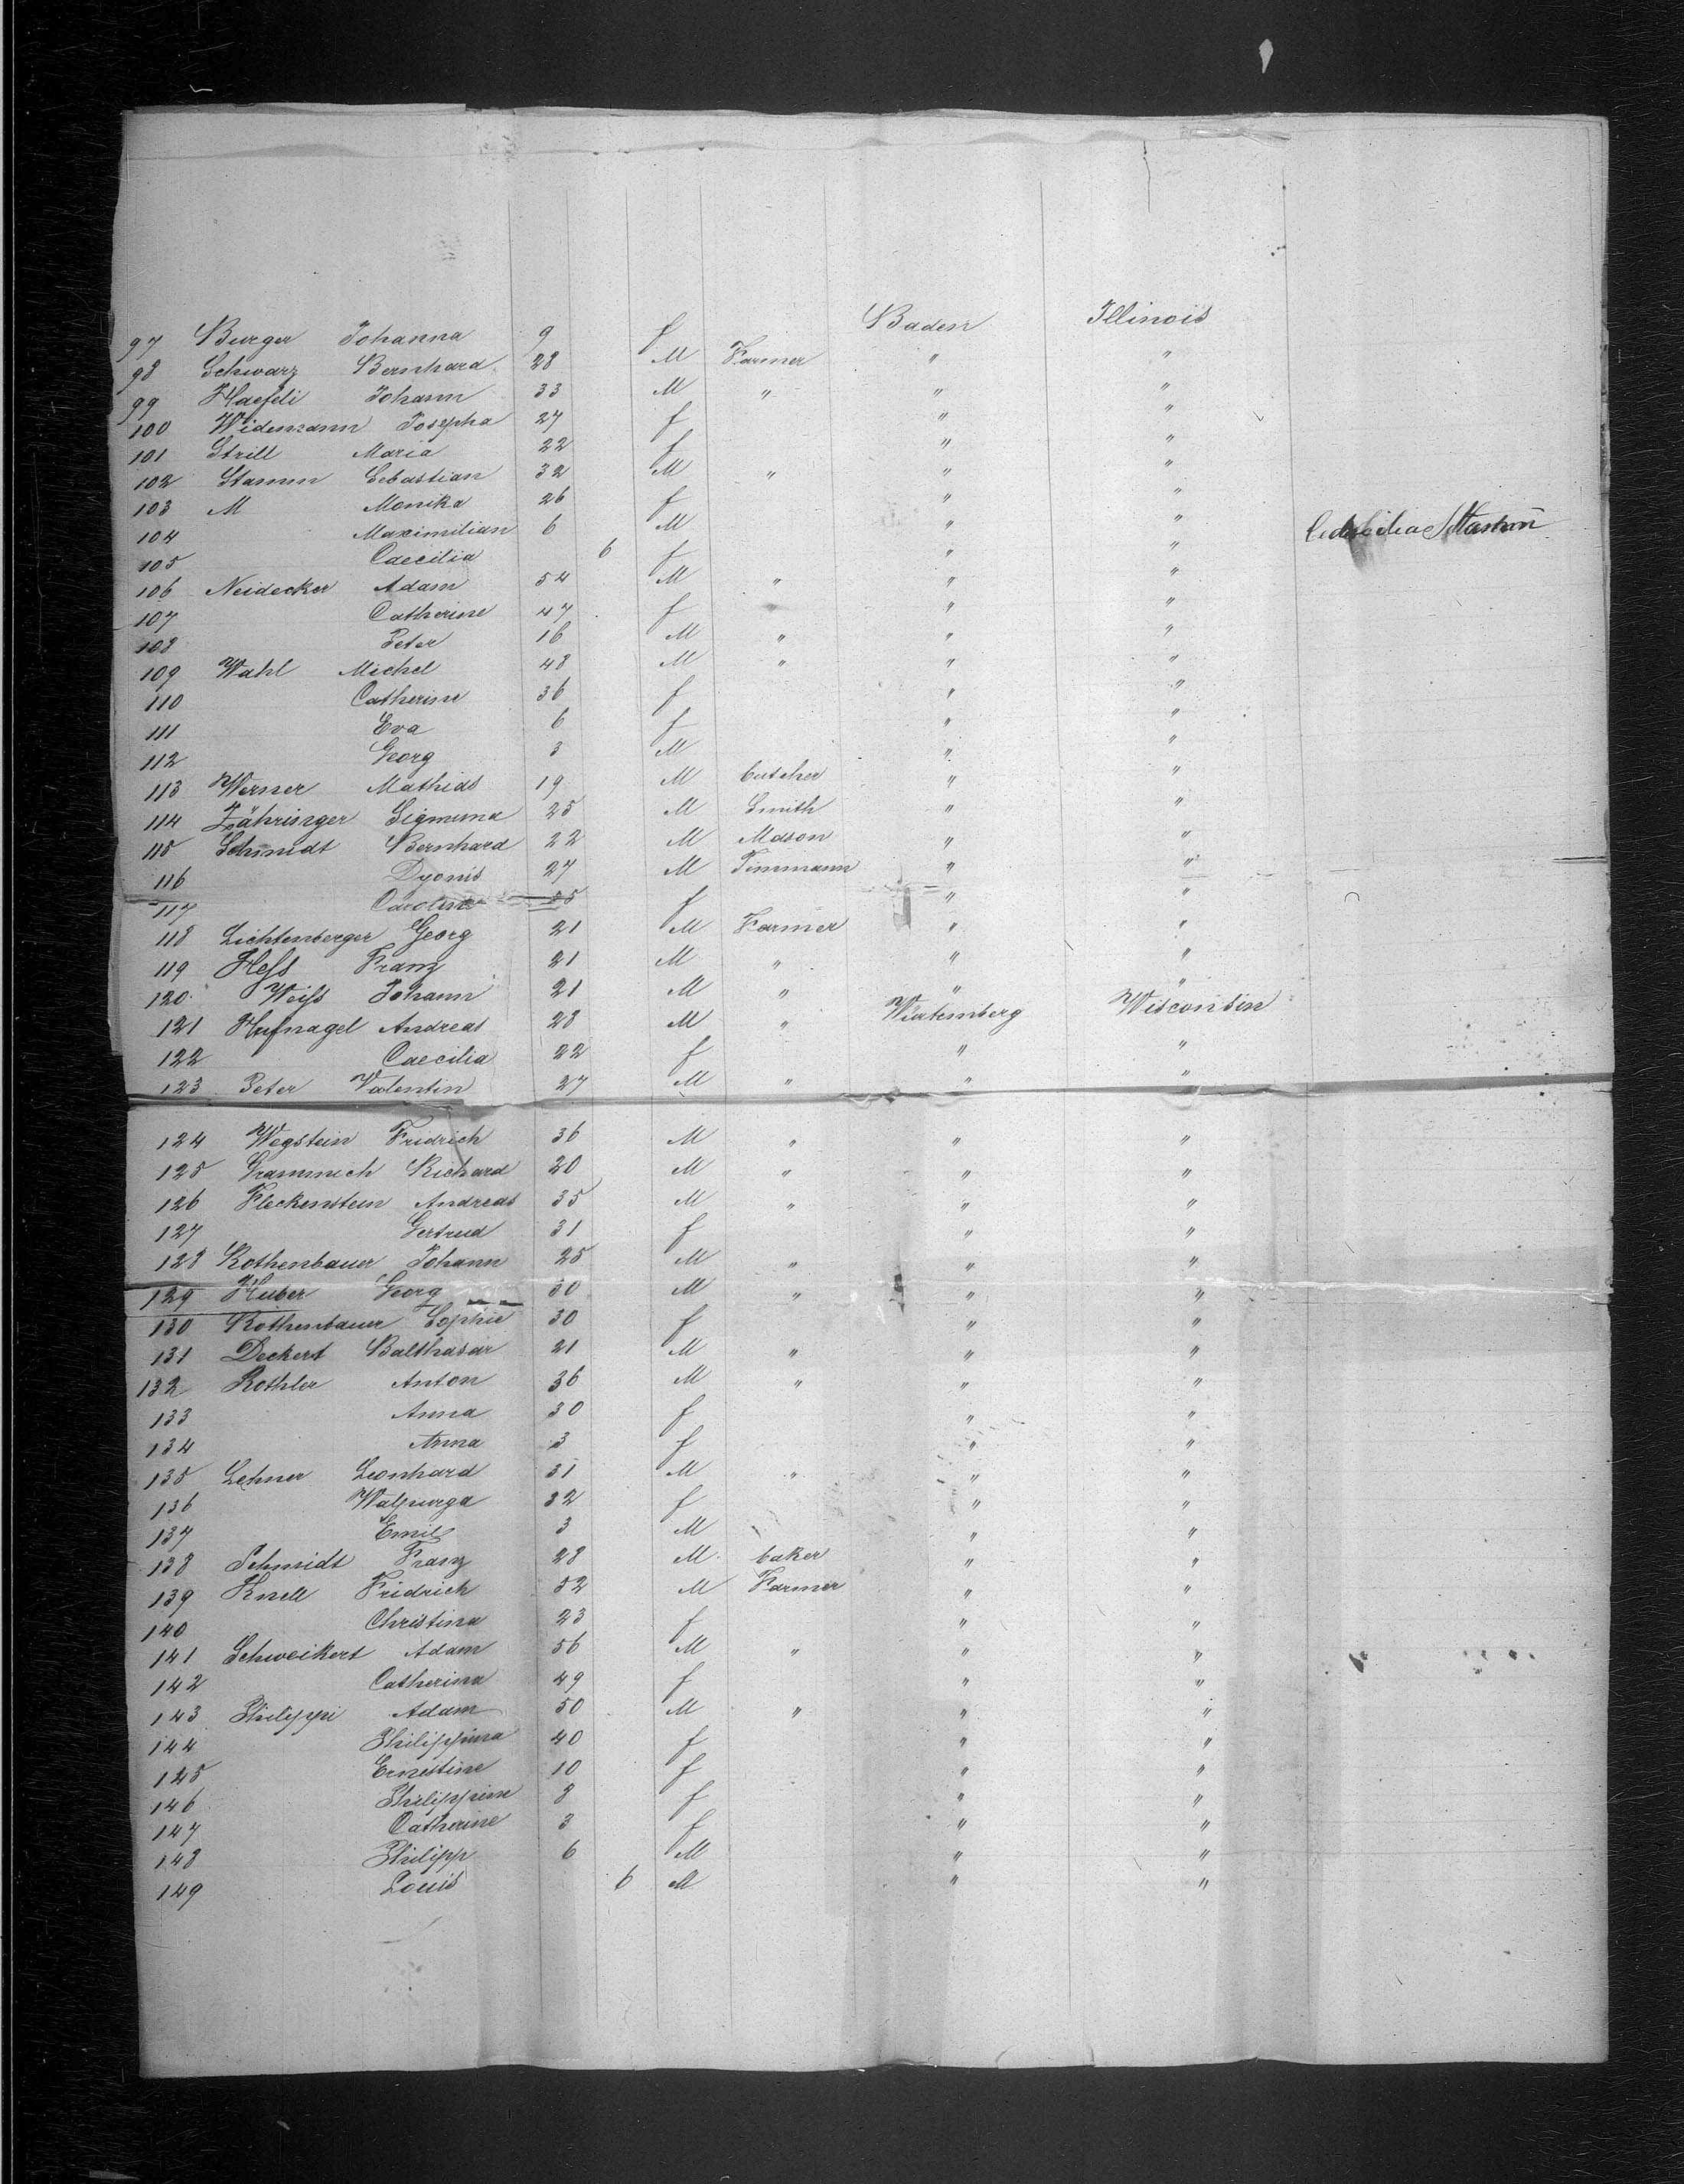 97 Burger Johanna 9 f Baden Illinois
98 Schwarz Bernhard 28 M Farmer " "
99 Haefeli Johann 33 M " " "
100 Widemann Josepha 27 f " "
101 Strill Maria 22 f " "
102 Stamm Sebastian 32 M " " "
103 M Monika 26 f " "
104 Maximilian 6 M " "
105 Caecilia 6 f " "
106 Neidecker Adam 54 M " " "
107 Catherine 47 f " "
108 Peter 16 M " " "
109 Wahl Michel 48 M " " "
110 Catherine 36 f " "
111 Eva 6 f " "
112 Georg 3 M " "
113 Werner Mathias 19 M butcher " "
114 Zähringer Sigmund 25 M Smith " "
115 Schmidt Bernhard 22 M Mason " "
116 Dyonis 27 M Timmann " "
117 Caroline f " "
118 Lichtenberger Georg 21 M Farmer " "
119 Heſs Franz 21 M " " "
120 Weiſs Johann 21 M " " "
121 Hufnagel Andreas 28 M " Würtemberg Wisconsin
122 Caecilia 22 f " "
123 Peter Valentin 27 M " " "
124 Wegstein Fridrich 36 M " " "
125 Grammich Richard 20 M " " "
126 Fleckenstein Andreas 35 M " " "
127 Gertrud 31 f " "
128 Rothenbauer Johann 25 M " " "
129 Huber Georg 30 M " " "
130 Rothenbauer Sophie 30 f " "
131 Deckert Balthasar 21 M " " "
132 Rothler Anton 36 M " " "
133 Anna 30 f " "
134 Anna 3 f " "
135 Lehner Leonhard 31 M " " "
136 Walpurga 32 f " "
137 Emil 3 M " "
138 Schmidt Franz 28 M baker " "
139 Knell Fridrich 52 M Farmer " "
140 Christina 23 f " "
141 Schweikert Adam 56 M " " "
142 Catherina 49 f " "
143 Philippi Adam 50 M " " "
144 Philippina 40 f " "
145 Ernestine 10 f " "
146 Philippine 8 f " "
147 Catherine 3 f " "
148 Philipp 6 M " "
149 Louis 6 M " "